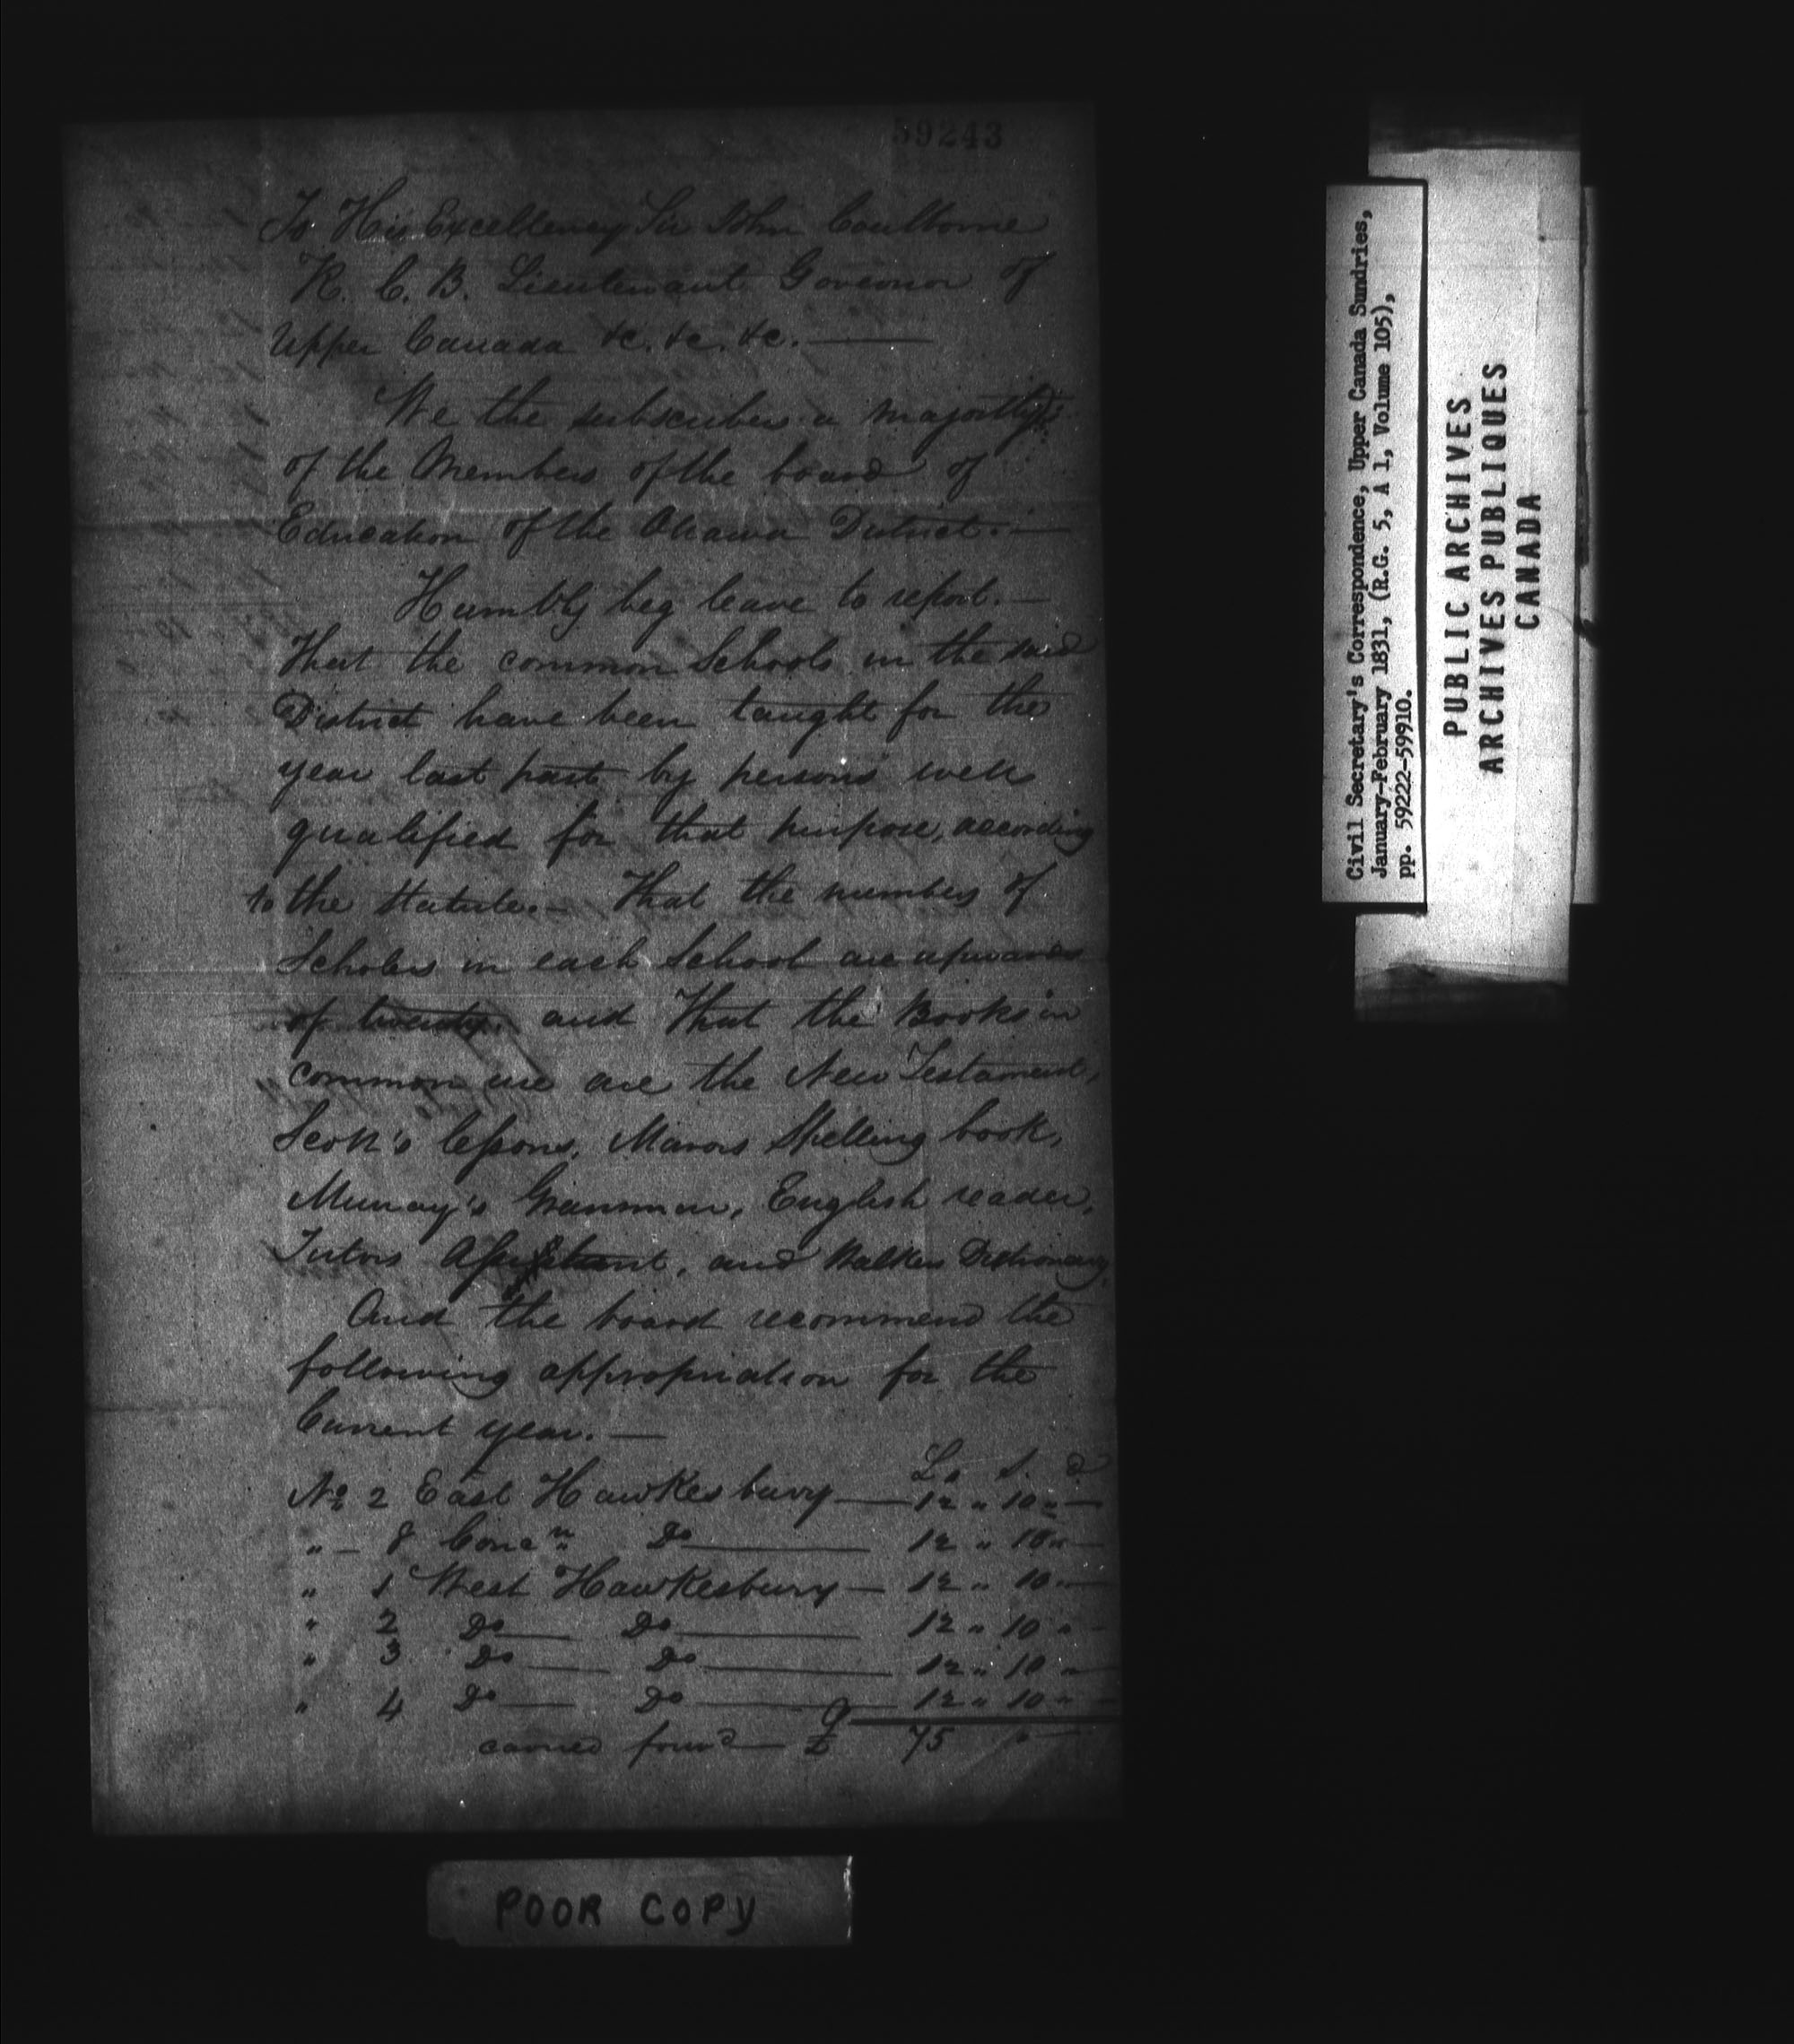 59243
To His Excellency Sir John Coulborne
K. C. B. Lieutenant Governor of
Upper Canada &c. &c. &c.
We the subscribers a majority
of the Members of the board of
Education of the Ottawa District.
Humbly beg leave to report.
That the common Schools in the said
District have been taught for the
year last past by persons well
qualified for that purpose, according
to the Statute. That the number of
Scholars in each School are upwards
of twenty and That the Books in
common use are the New Testament,
Scott's lessons, Mavors Spelling book,
Murray's Grammar, English reader,
Tutors Assistant, and Walkers Dictionary
And the board recommend the
following appropriation for the
Current year.
L. s. d
No 2 East Hawkesbury 12 " 10 "
" 8 Conc.n Do 12 " 10 "
" 1 West Hawkesbury 12 " 10 "
" 2 Do Do 12 " 10 "
" 3 Do Do 12 " 10 "
" 4 Do Do 12 " 10 "
carried forwd £ 75 "
POOR COPY
Civil Secretary's Correspondence, Upper Canada Sundries,
January-February 1831, (R.G. 5, A 1, Volume 105),
pp. 59222-59910.
PUBLIC ARCHIVES
ARCHIVES PUBLIQUES
CANADA